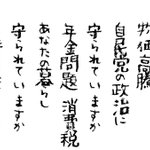 物価高騰
自民党の政治に
守られていますか
年金問題 消費税
あなたの暮らし
守られていますか